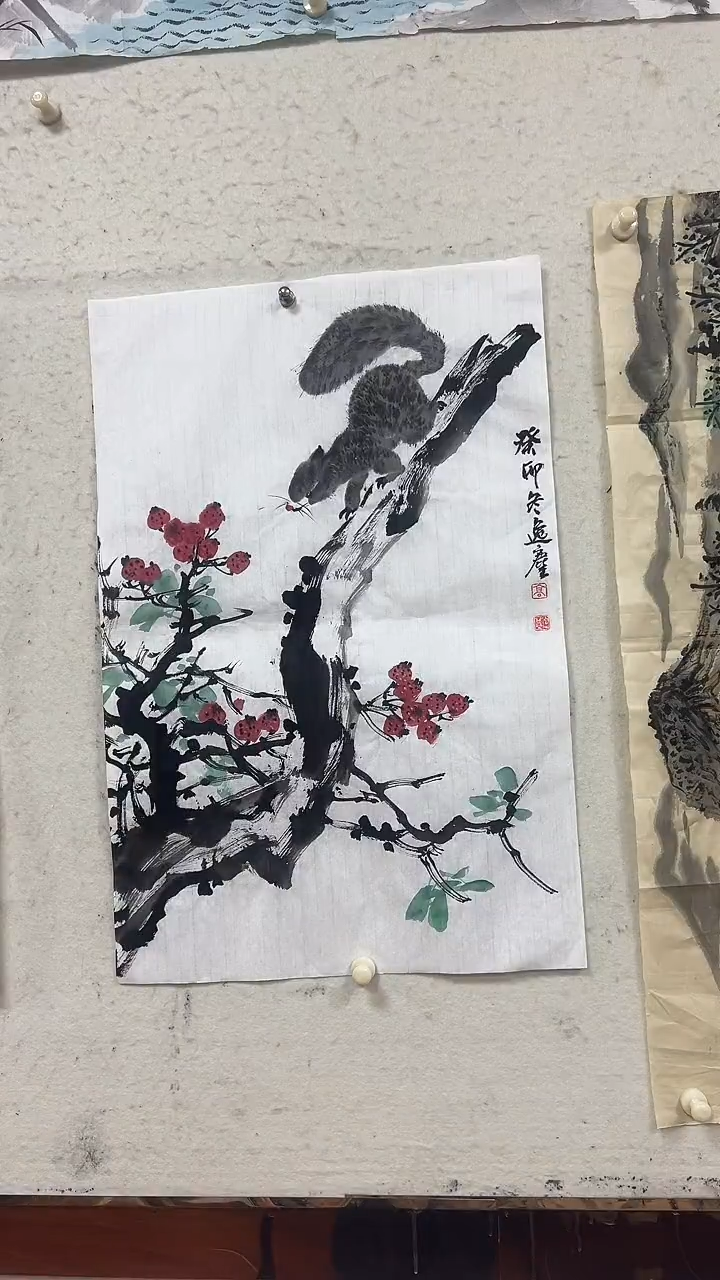 癸卯冬逸塵